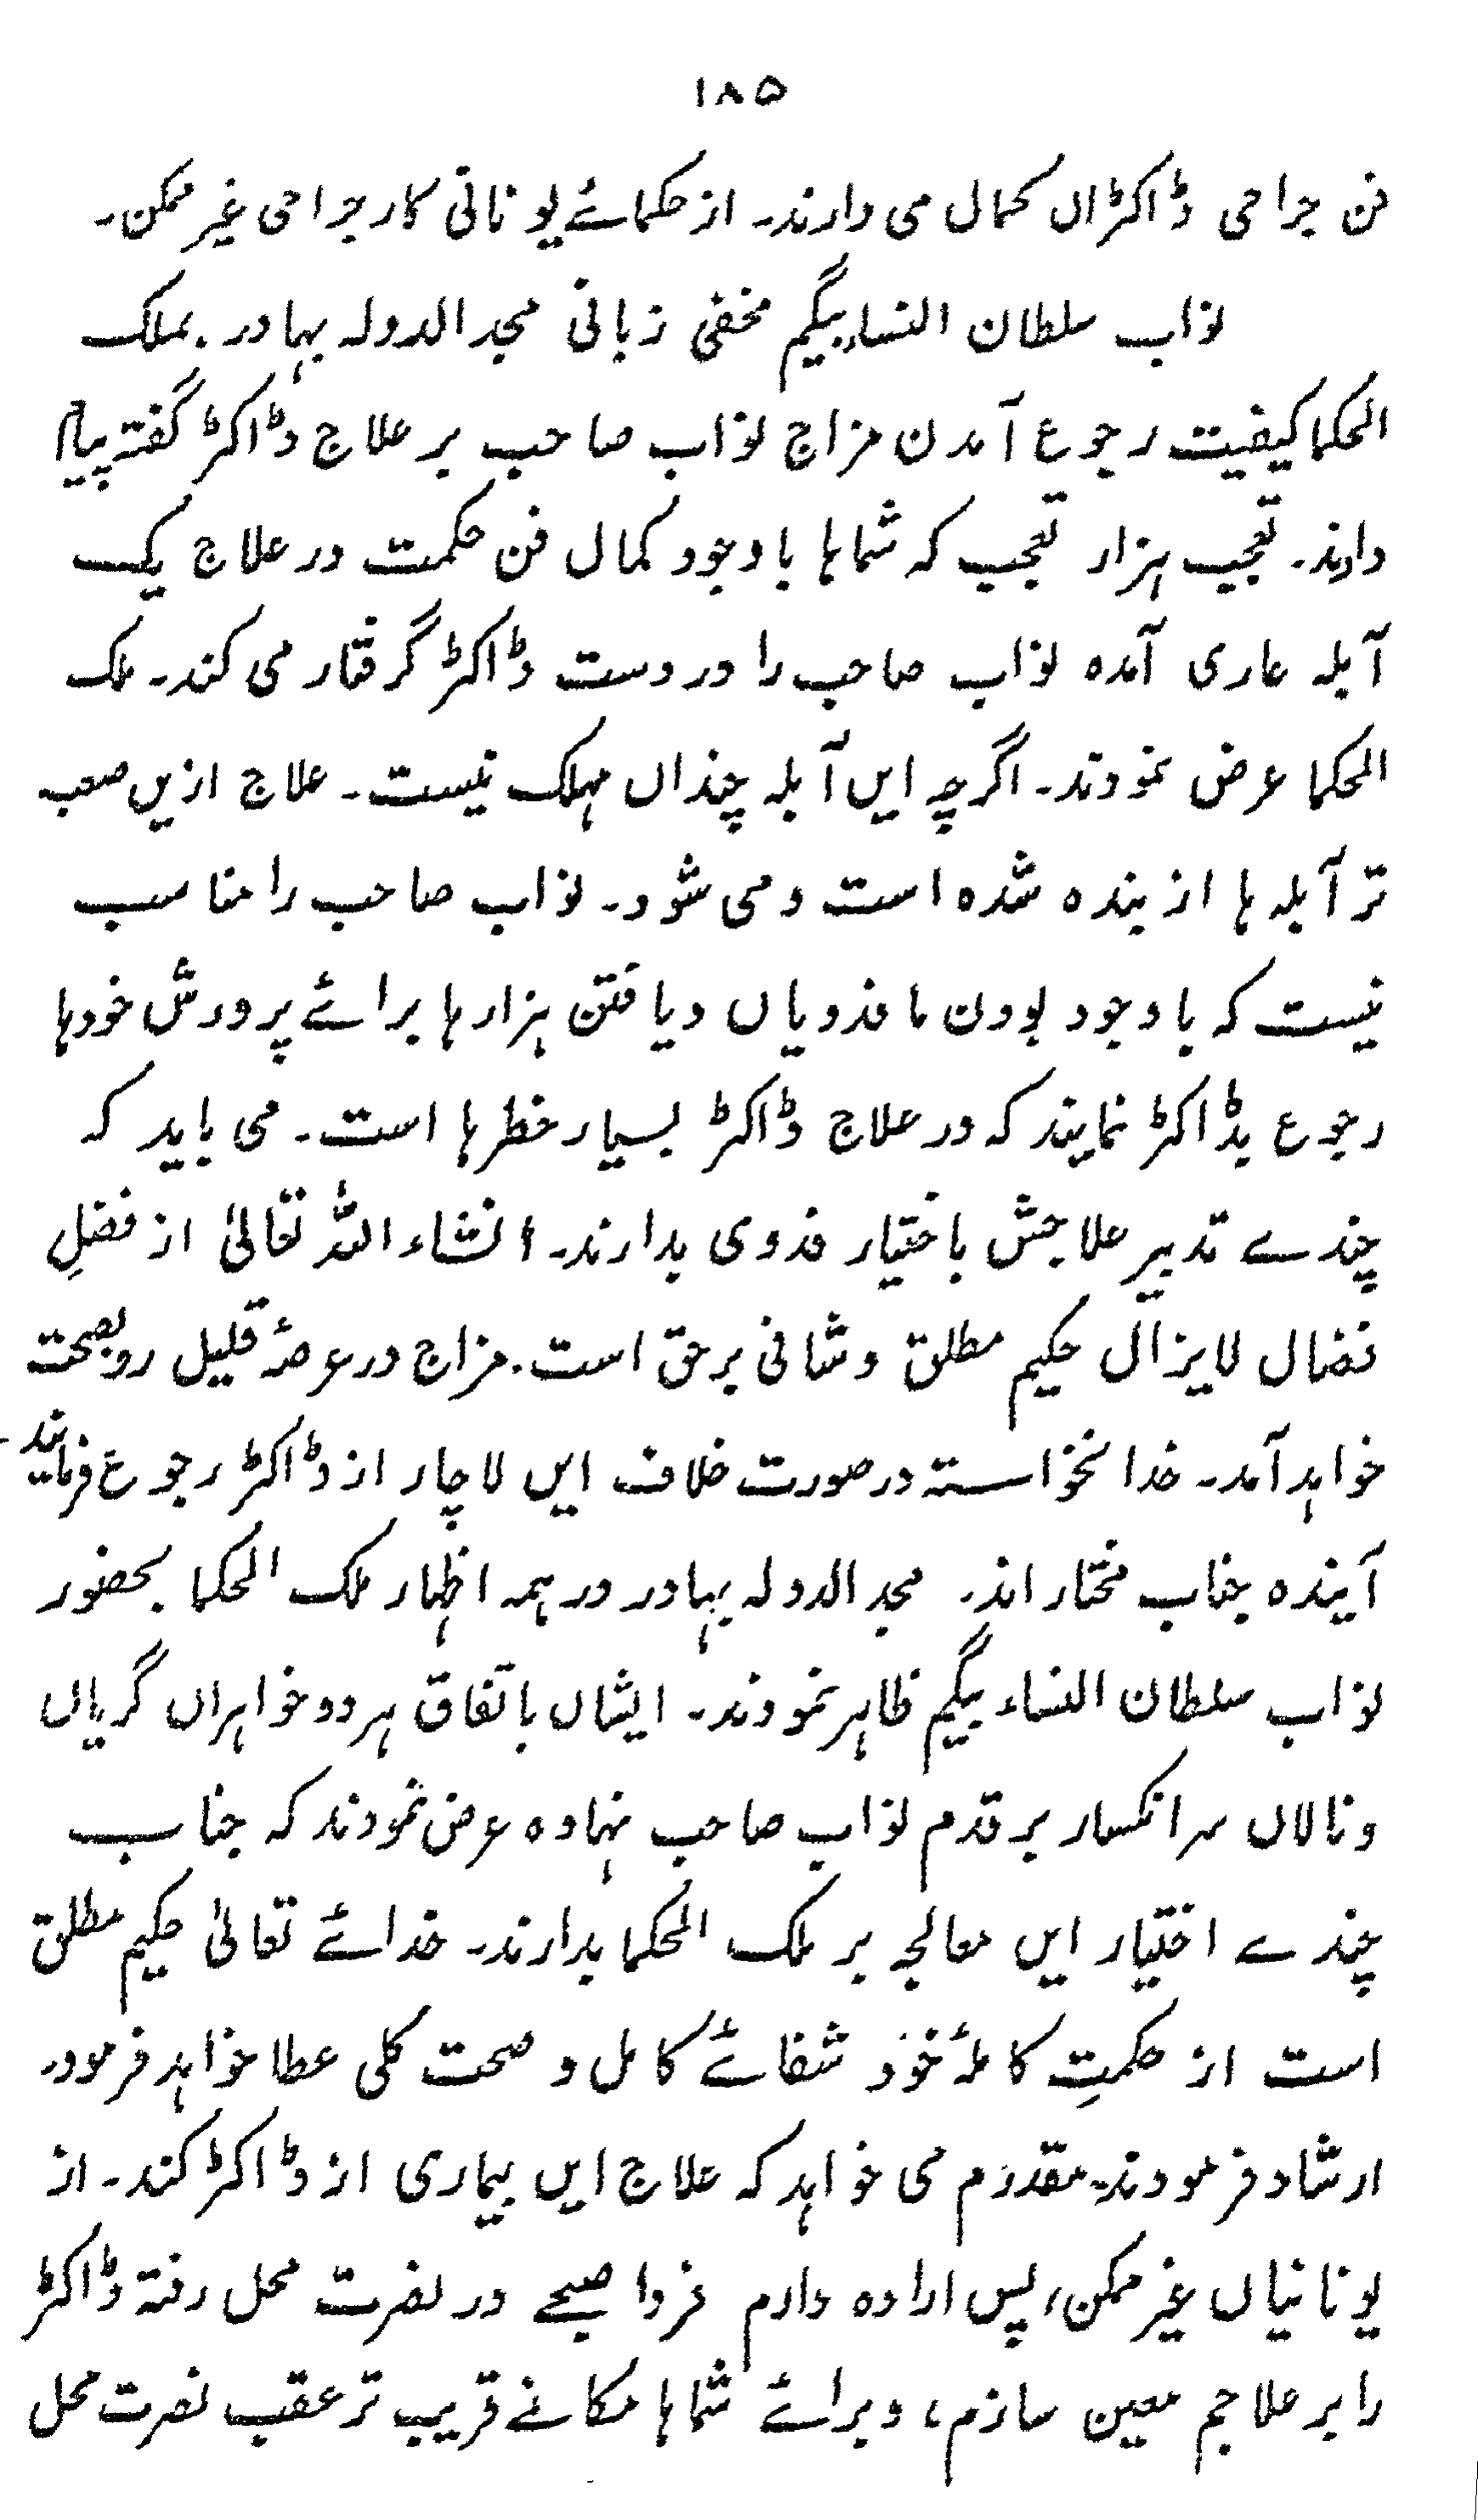 ۱۸۵
فن جراحی ڈاکٹراں کمال می دارند۔ از حکمائے یونانی کار جراحی غیر ممکن۔
نواب سلطان النساء بیگم مخفی زبانی مجد الدولہ بہادر۔ بملک
الحکما کیفیت رجوع آمدن مزاج نواب صاحب بر علاج ڈاکٹر گفتہ پیام
دادند۔ تعجب ہزار تعجب کہ شماہا باوجود کمال فن حکمت در علاج یک
آبلہ عاری آمدہ نواب صاحب را در دست ڈاکٹر گرفتار می کند۔ ملک
الحکما عرض نمودند۔ اگرچہ ایں آبلہ چنداں مہلک نیست۔ علاج ازیں صعب
تر آبلہ ہا از بندہ شدہ است و می شود۔ نواب صاحب را مناسب
نیست کہ باوجود بودن ما فدویاں و یافتن ہزارہا برائے پرورش خودہا
رجوع بڈاکٹر نمایند کہ در علاج ڈاکٹر بسیار خطرہا است۔ می باید کہ
چندے تدبیر علاجش باختیار فدوی بدارند۔ انشاء اللہ تعالیٰ از فضلِ
فضال لایزال حکیم مطلق و شافی برحق است۔ مزاج در عرصۂ قلیل رو بصحت
خواہد آمد۔ خدا نخواستہ در صورت خلاف ایں لاچار از ڈاکٹر رجوع فرمایند۔
آیندہ جناب مختار اند۔ مجد الدولہ بہادر در ہمہ اظہار ملک الحکما بحضور
نواب سلطان النساء بیگم ظاہر نمودند۔ ایشاں باتفاق ہر دو خواہراں گریاں
و نالاں سر انکسار بر قدم نواب صاحب نہادہ عرض نمودند کہ جناب
چندے اختیار ایں معالجہ بر ملک الحکما بدارند۔ خدائے تعالیٰ حکیم مطلق
است از حکمتِ کاملۂ خود شفائے کامل و صحت کلی عطا خواہد فرمود۔
ارشاد فرمودند۔ مقدرم می خواہد کہ علاج ایں بیماری از ڈاکٹر کند۔ از
یونانیاں غیر ممکن، پس ارادہ دارم فردا صبحے در نصرت محل رفتہ ڈاکٹر
را بر علاجم معین سازم، و برائے شماہا مکانے قریب تر عقب نصرت محل